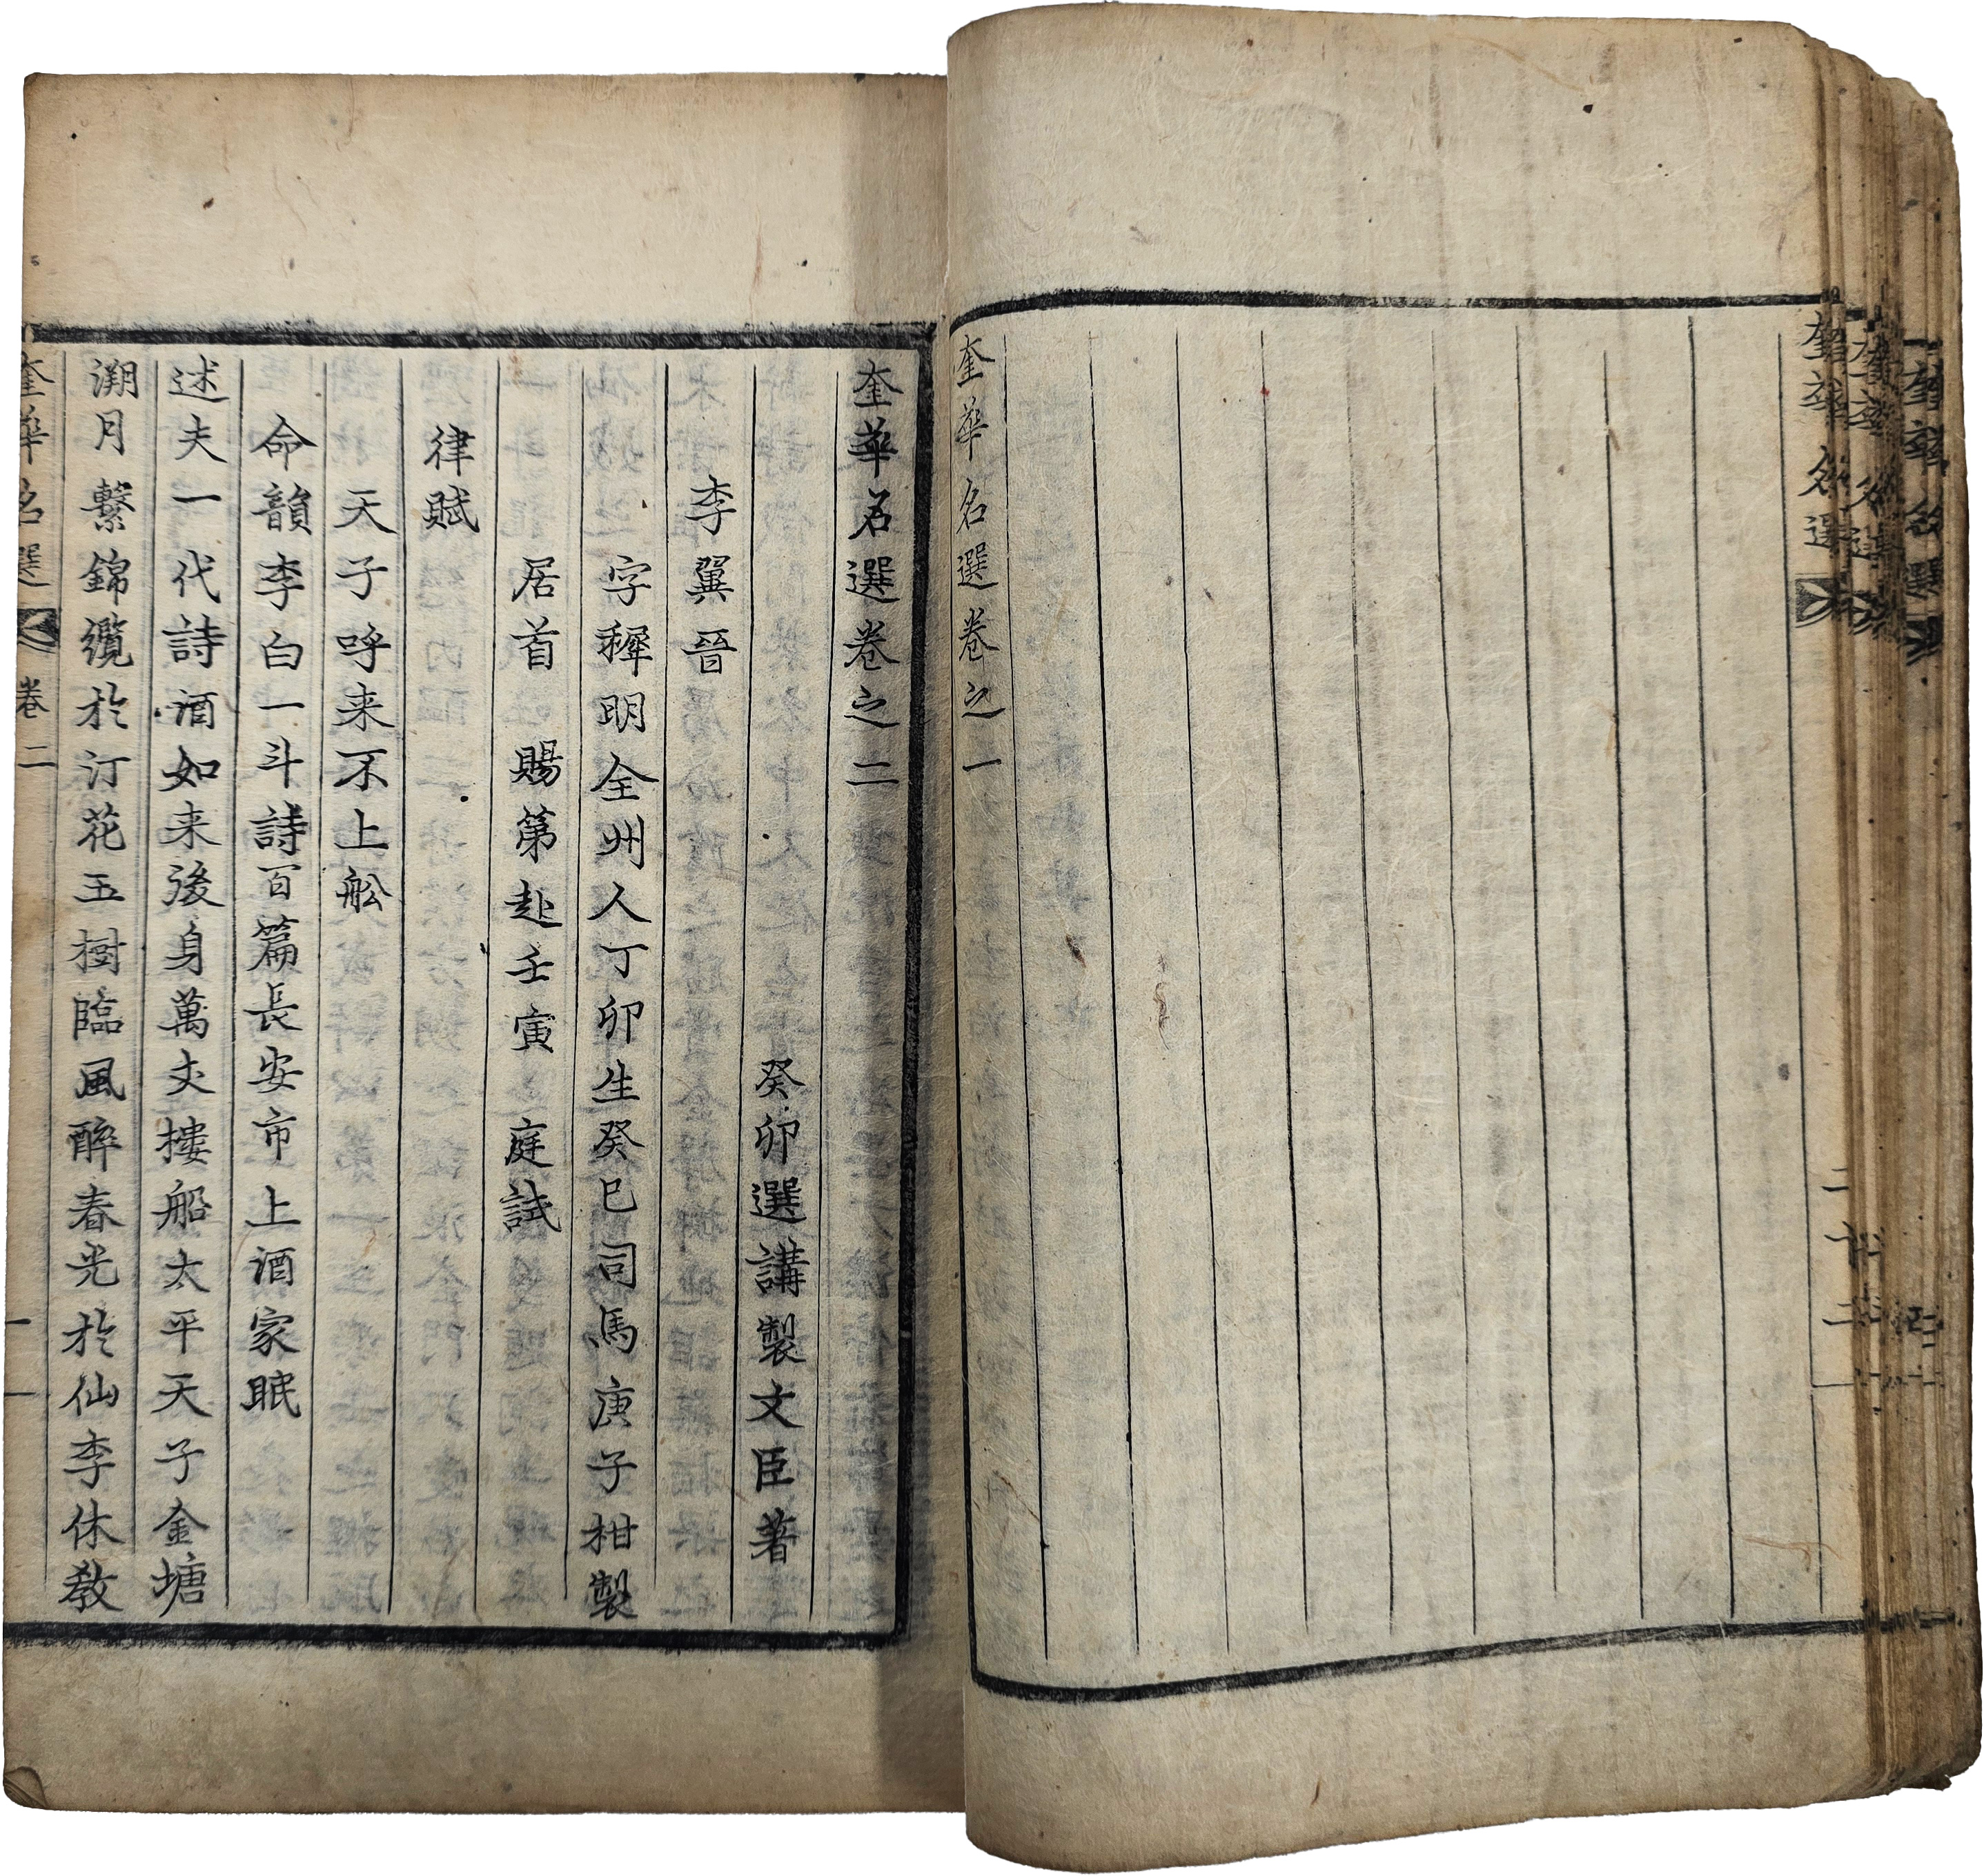 奎華名選
奎華名選
奎華名選
二十二
奎華名選卷之一
奎華名選卷之二
癸卯選講製文臣著
李翼晉
字穉明全州人丁卯生癸巳司馬庚子柑製
居首 賜第赴壬寅 庭試
律賦
天子呼来不上舩
命韻李白一斗詩百篇長安市上酒家眠
述夫一代詩酒如来後身萬丈樓船太平天子金塘
溯月繫錦纜於汀花玉樹臨風醉春光於仙李休教
奎華名選 卷二 一